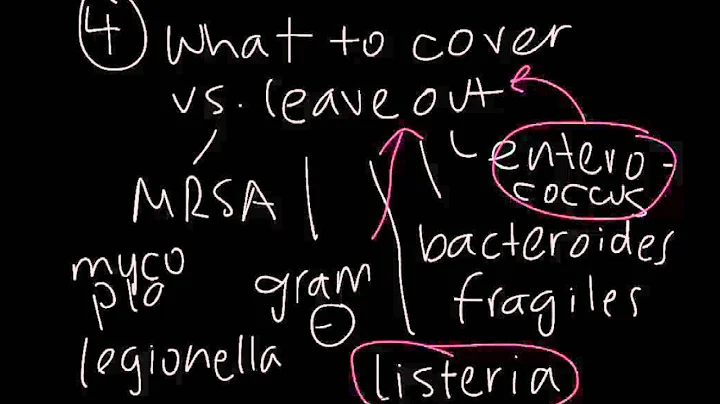 4 What to cover
vs. leave out
entero-
coccus
MRSA
bacteroides
fragiles
myco
pla
gram
-
legionella
listeria